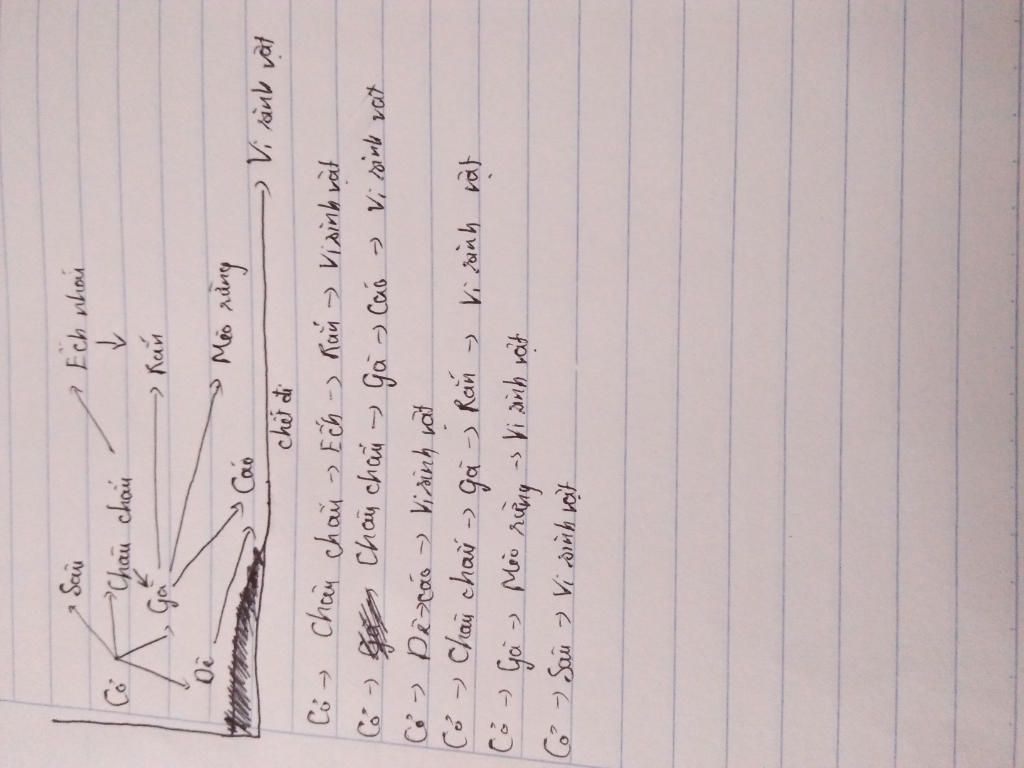 Sâu → Ếch nhái
Cỏ → Châu chấu
Gà → Rắn
Dê
Cáo
Mèo rừng
chết đi
Vi sinh vật
Cỏ → Châu chấu → Ếch → Rắn → Vi sinh vật
Cỏ → Châu chấu → Gà → Cáo → Vi sinh vật
Cỏ → Dê → cáo → Vi sinh vật
Cỏ → Châu chấu → Gà → Rắn → Vi sinh vật
Cỏ → Gà → Mèo rừng → Vi sinh vật
Cỏ → Sâu → Vi sinh vật